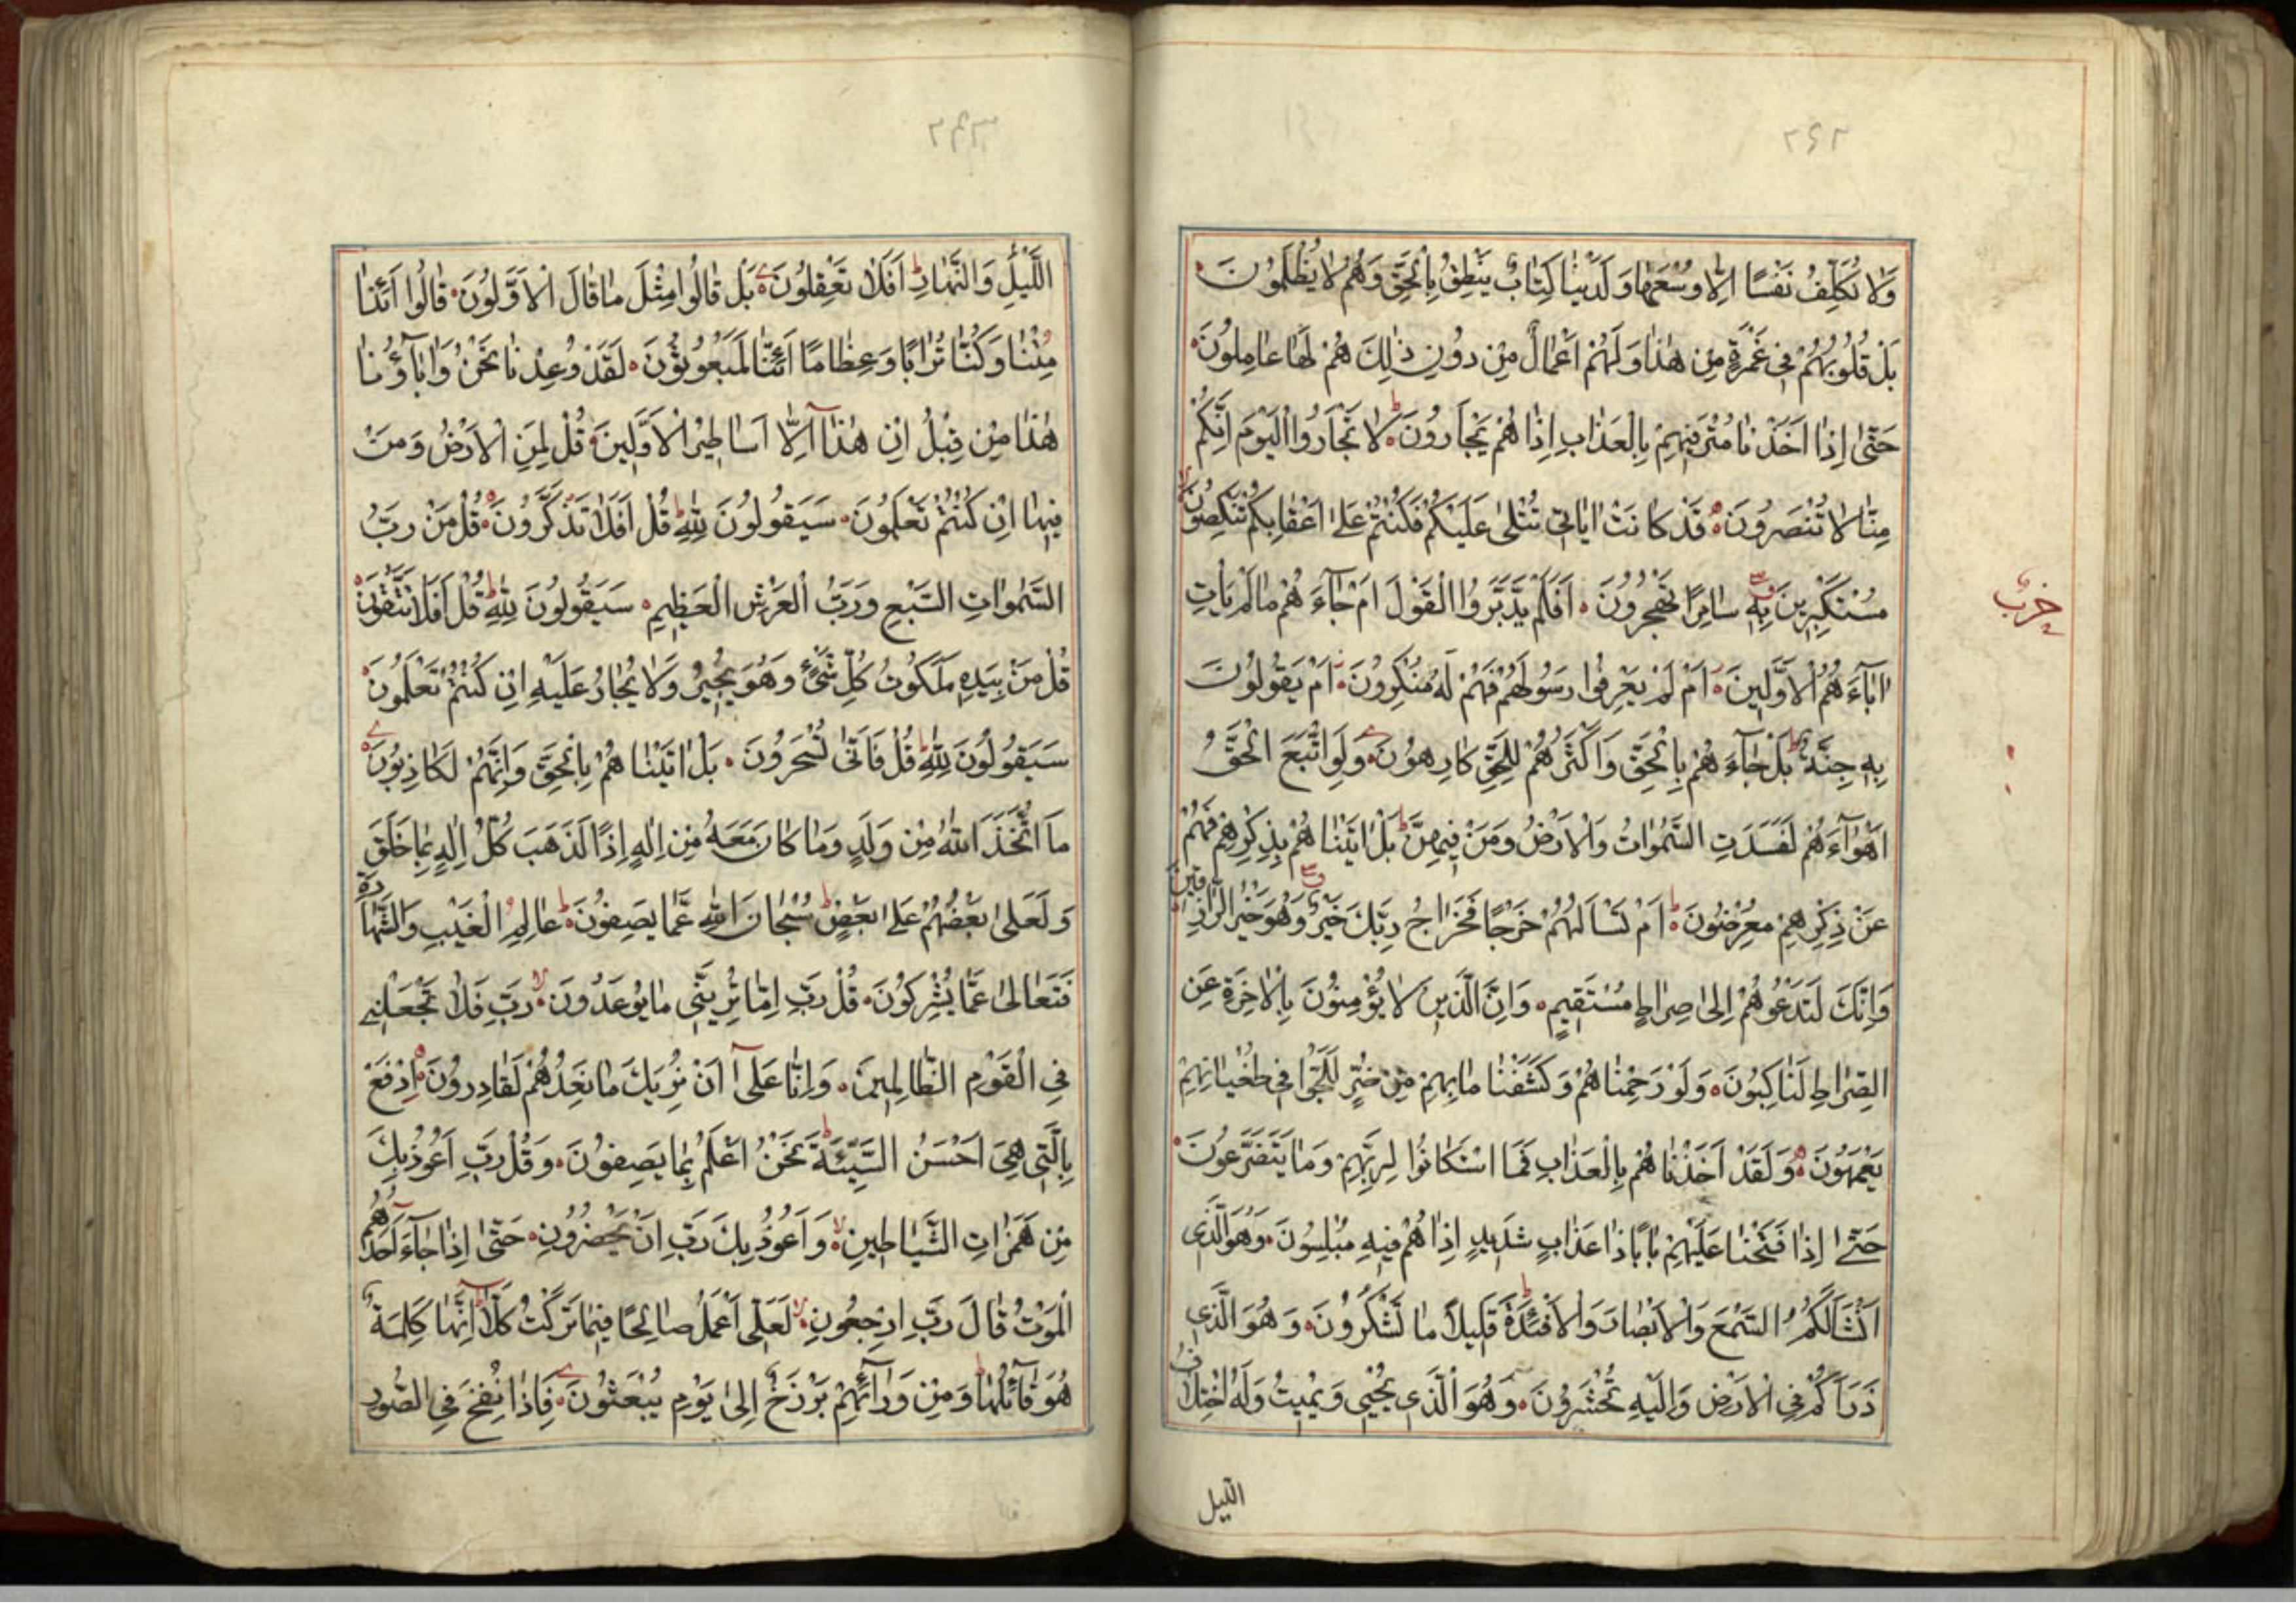 ٢٤٢
وَلَا نُكَلِّفُ نَفْسًا اِلَّا وُسْعَهَا وَلَدَيْنَا كِتَابٌ يَنْطِقُ بِالْحَقِّ وَهُمْ لَا يُظْلَمُونَ
بَلْ قُلُوبُهُمْ فِي غَمْرَةٍ مِنْ هٰذَا وَلَهُمْ اَعْمَالٌ مِنْ دُونِ ذٰلِكَ هُمْ لَهَا عَامِلُونَ
حَتّٰى اِذَا اَخَذْنَا مُتْرَفِيهِمْ بِالْعَذَابِ اِذَا هُمْ يَجْأَرُونَ لَا تَجْأَرُوا الْيَوْمَ اِنَّكُمْ
مِنَّا لَا تُنْصَرُونَ قَدْ كَانَتْ اٰيَاتِي تُتْلٰى عَلَيْكُمْ فَكُنْتُمْ عَلٰى اَعْقَابِكُمْ تَنْكِصُونَ
مُسْتَكْبِرِينَ بِهِ سَامِرًا تَهْجُرُونَ اَفَلَمْ يَدَّبَّرُوا الْقَوْلَ اَمْ جَآءَ هُمْ مَا لَمْ يَأْتِ
اٰبَآءَ هُمُ الْاَوَّلِينَ اَمْ لَمْ يَعْرِفُوا رَسُولَهُمْ فَهُمْ لَهُ مُنْكِرُونَ اَمْ يَقُولُونَ
بِهِ جِنَّةٌ بَلْ جَآءَ هُمْ بِالْحَقِّ وَاَكْثَرُهُمْ لِلْحَقِّ كَارِهُونَ وَلَوِ اتَّبَعَ الْحَقُّ
اَهْوَآءَ هُمْ لَفَسَدَتِ السَّمٰوَاتُ وَالْاَرْضُ وَمَنْ فِيهِنَّ بَلْ اَتَيْنَا هُمْ بِذِكْرِهِمْ فَهُمْ
عَنْ ذِكْرِهِمْ مُعْرِضُونَ اَمْ تَسْاَلُهُمْ خَرْجًا فَخَرَاجُ رَبِّكَ خَيْرٌ وَهُوَ خَيْرُ الرَّازِقِينَ
وَاِنَّكَ لَتَدْعُوهُمْ اِلٰى صِرَاطٍ مُسْتَقِيمٍ وَاِنَّ الَّذِينَ لَا يُؤْمِنُونَ بِالْاٰخِرَةِ عَنِ
الصِّرَاطِ لَنَاكِبُونَ وَلَوْ رَحِمْنَا هُمْ وَكَشَفْنَا مَا بِهِمْ مِنْ ضُرٍّ لَلَجُّوا فِي طُغْيَانِهِمْ
يَعْمَهُونَ وَلَقَدْ اَخَذْنَا هُمْ بِالْعَذَابِ فَمَا اسْتَكَانُوا لِرَبِّهِمْ وَمَا يَتَضَرَّعُونَ
حَتّٰى اِذَا فَتَحْنَا عَلَيْهِمْ بَابًا ذَا عَذَابٍ شَدِيدٍ اِذَا هُمْ فِيهِ مُبْلِسُونَ وَهُوَ الَّذِي
اَنْشَاَ لَكُمُ السَّمْعَ وَالْاَبْصَارَ وَالْاَفْئِدَةَ قَلِيلًا مَا تَشْكُرُونَ وَهُوَ الَّذِي
ذَرَاَكُمْ فِي الْاَرْضِ وَاِلَيْهِ تُحْشَرُونَ وَهُوَ الَّذِي يُحْيِي وَيُمِيتُ وَلَهُ اخْتِلَافُ
الليل
حزب
اللَّيْلِ وَالنَّهَارِ اَفَلَا تَعْقِلُونَ بَلْ قَالُوا مِثْلَ مَا قَالَ الْاَوَّلُونَ قَالُوا اَئِذَا
مِتْنَا وَكُنَّا تُرَابًا وَعِظَامًا اَئِنَّا لَمَبْعُوثُونَ لَقَدْ وُعِدْنَا نَحْنُ وَاٰبَآؤُنَا
هٰذَا مِنْ قَبْلُ اِنْ هٰذَآ اِلَّا اَسَاطِيرُ الْاَوَّلِينَ قُلْ لِمَنِ الْاَرْضُ وَمَنْ
فِيهَا اِنْ كُنْتُمْ تَعْلَمُونَ سَيَقُولُونَ لِلّٰهِ قُلْ اَفَلَا تَذَكَّرُونَ قُلْ مَنْ رَبُّ
السَّمٰوَاتِ السَّبْعِ وَرَبُّ الْعَرْشِ الْعَظِيمِ سَيَقُولُونَ لِلّٰهِ قُلْ اَفَلَا تَتَّقُونَ
قُلْ مَنْ بِيَدِهِ مَلَكُوتُ كُلِّ شَيْءٍ وَهُوَ يُجِيرُ وَلَا يُجَارُ عَلَيْهِ اِنْ كُنْتُمْ تَعْلَمُونَ
سَيَقُولُونَ لِلّٰهِ قُلْ فَاَنّٰى تُسْحَرُونَ بَلْ اَتَيْنَا هُمْ بِالْحَقِّ وَاِنَّهُمْ لَكَاذِبُونَ
مَا اتَّخَذَ اللّٰهُ مِنْ وَلَدٍ وَمَا كَانَ مَعَهُ مِنْ اِلٰهٍ اِذًا لَذَهَبَ كُلُّ اِلٰهٍ بِمَا خَلَقَ
وَلَعَلٰى بَعْضُهُمْ عَلٰى بَعْضٍ سُبْحَانَ اللّٰهِ عَمَّا يَصِفُونَ عَالِمِ الْغَيْبِ وَالشَّهَادَةِ
فَتَعَالٰى عَمَّا يُشْرِكُونَ قُلْ رَبِّ اِمَّا تُرِيَنِّي مَا يُوعَدُونَ رَبِّ فَلَا تَجْعَلْنِي
فِي الْقَوْمِ الظَّالِمِينَ وَاِنَّا عَلٰٓى اَنْ نُرِيَكَ مَا نَعِدُهُمْ لَقَادِرُونَ اِدْفَعْ
بِالَّتِي هِيَ اَحْسَنُ السَّيِّئَةَ نَحْنُ اَعْلَمُ بِمَا يَصِفُونَ وَقُلْ رَبِّ اَعُوذُ بِكَ
مِنْ هَمَزَاتِ الشَّيَاطِينِ وَاَعُوذُ بِكَ رَبِّ اَنْ يَحْضُرُونِ حَتّٰى اِذَا جَآءَ اَحَدَهُمُ
الْمَوْتُ قَالَ رَبِّ ارْجِعُونِ لَعَلِّي اَعْمَلُ صَالِحًا فِيمَا تَرَكْتُ كَلَّا اِنَّهَا كَلِمَةٌ
هُوَ قَآئِلُهَا وَمِنْ وَرَآئِهِمْ بَرْزَخٌ اِلٰى يَوْمِ يُبْعَثُونَ فَاِذَا نُفِخَ فِي الصُّورِ